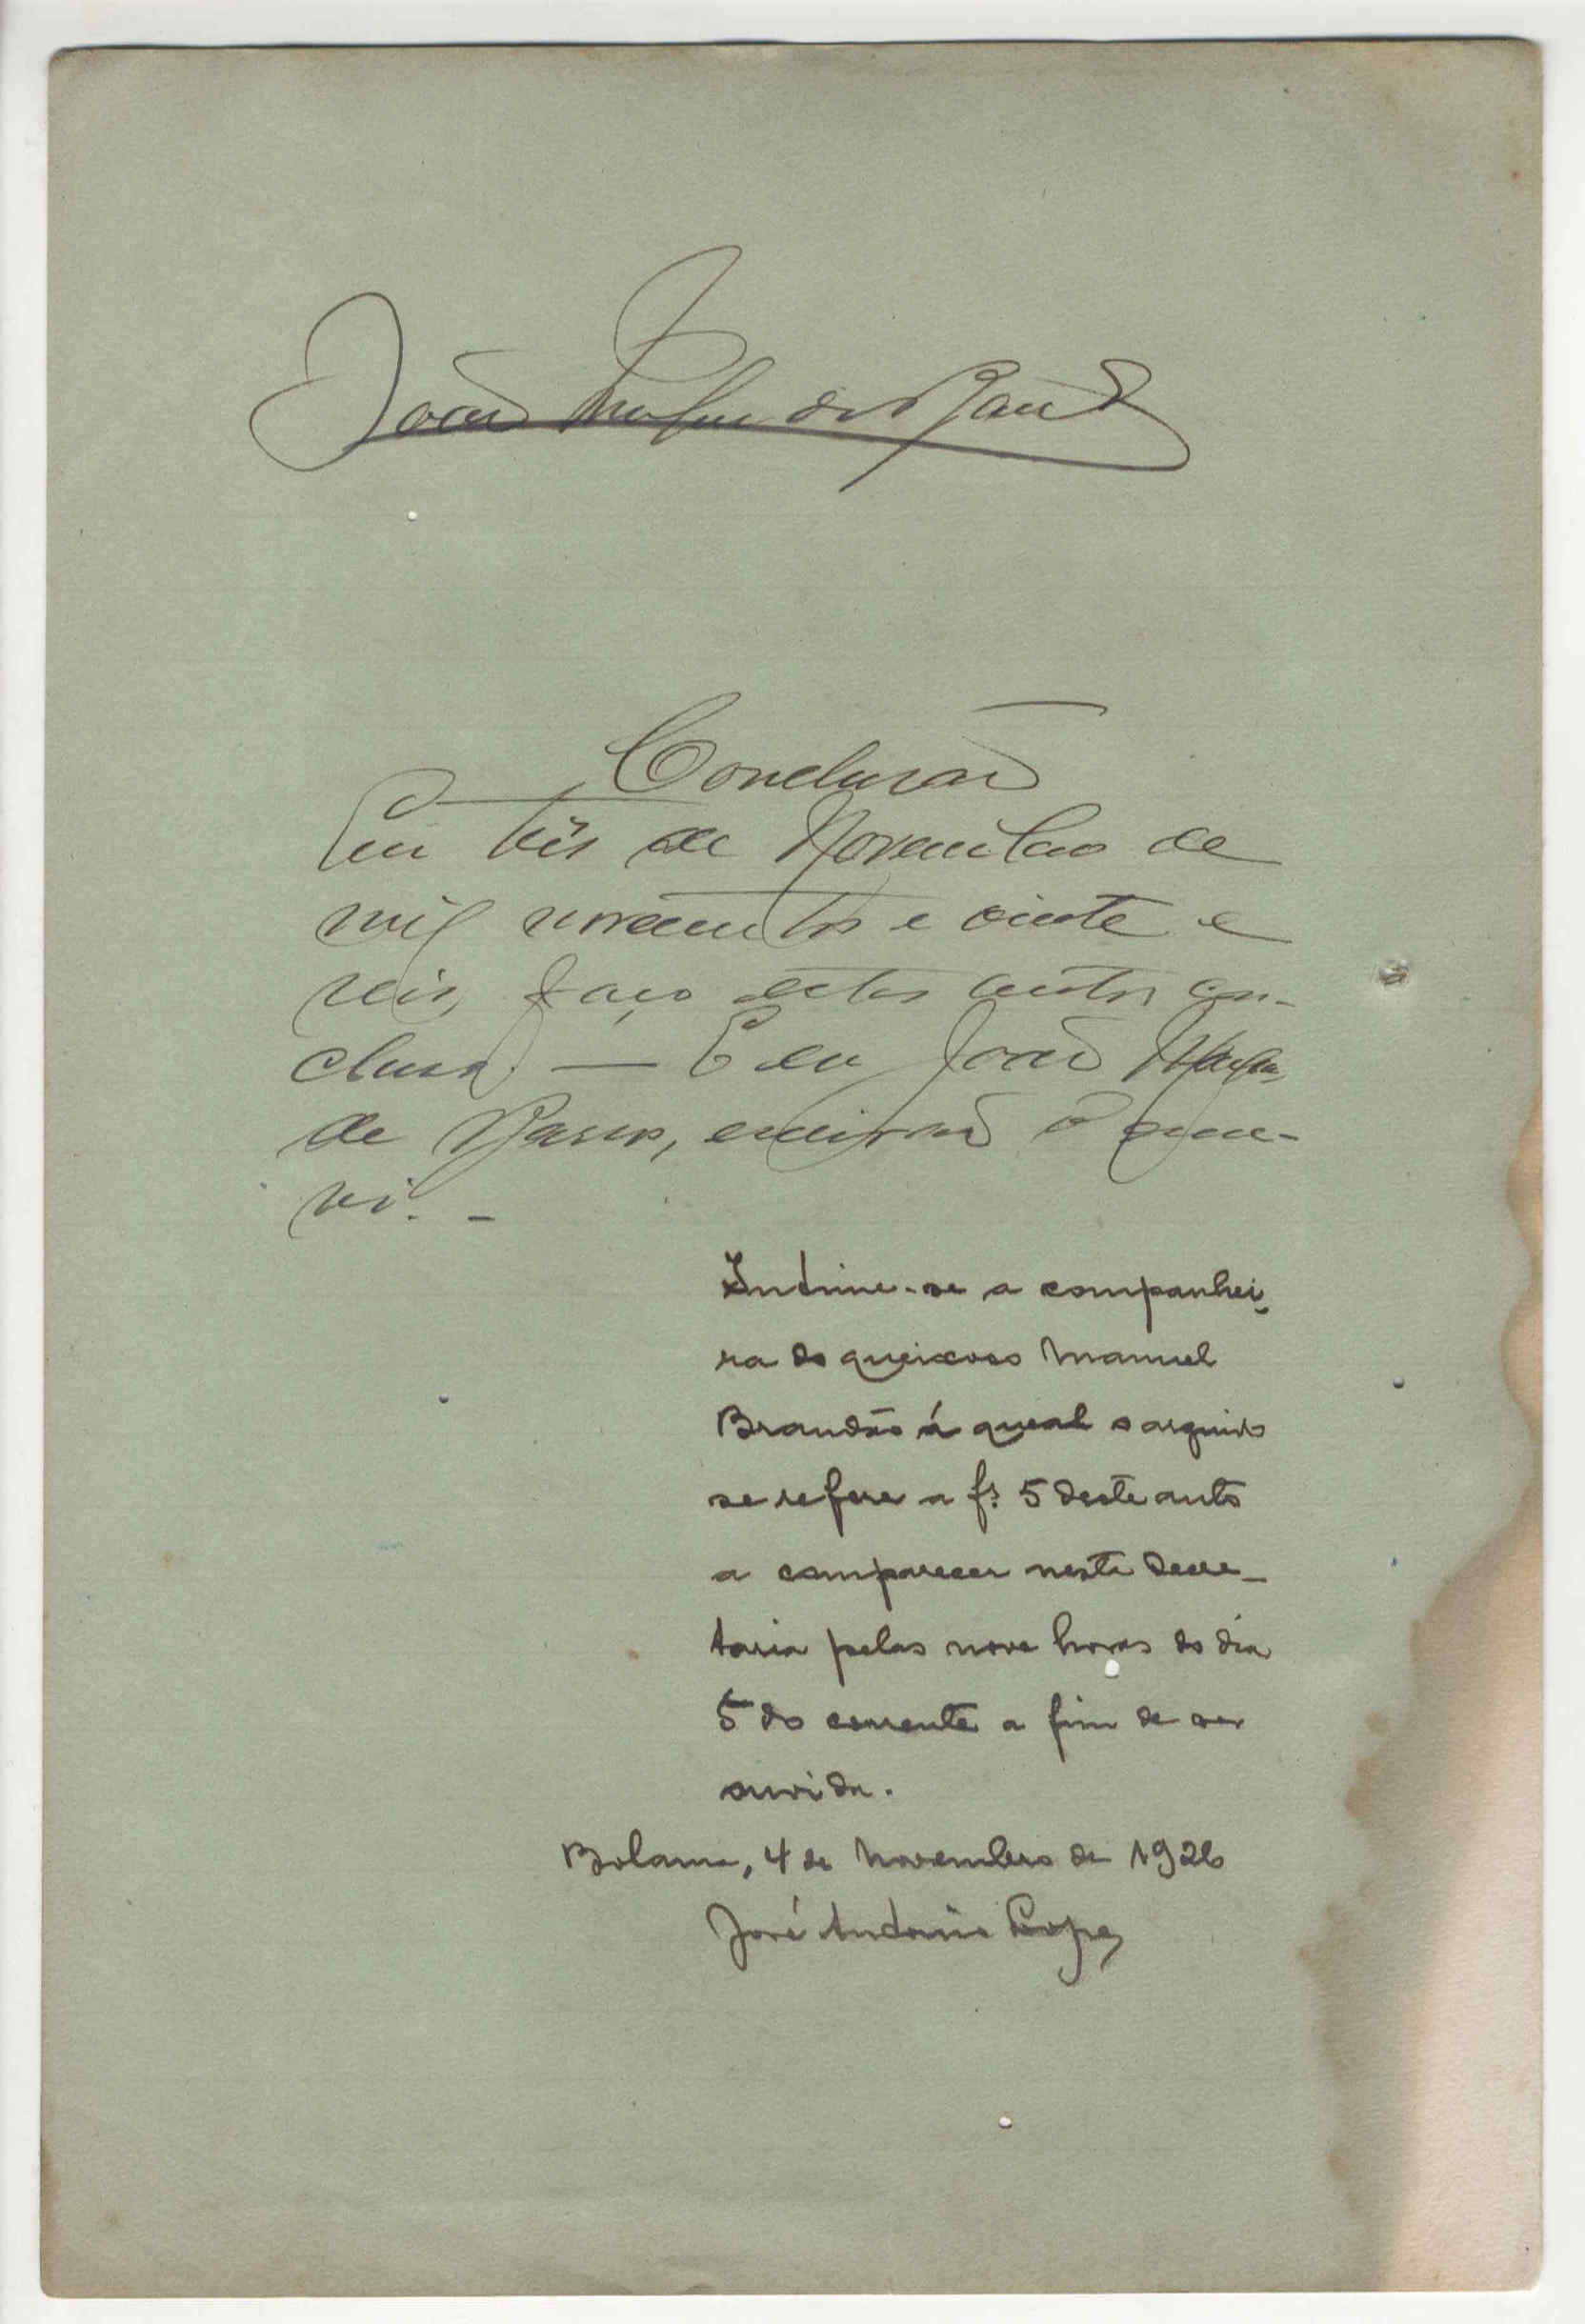 João
Conclusão
Em três de Novembro de
mil novecentos e vinte e
seis, faço estes autos con-
clusos. — E eu João
de Barros, escrivão o escre-
vi. -
Intime-se a companhei-
ra do queixoso Manuel
Brandão á qual o arguido
se refere a fs. 5 deste auto
a comparecer nesta Secre-
taria pelas nove horas do dia
5 do corrente a fim de ser
ouvida.
Bolama, 4 de Novembro de 1926
José Antonio Lopes